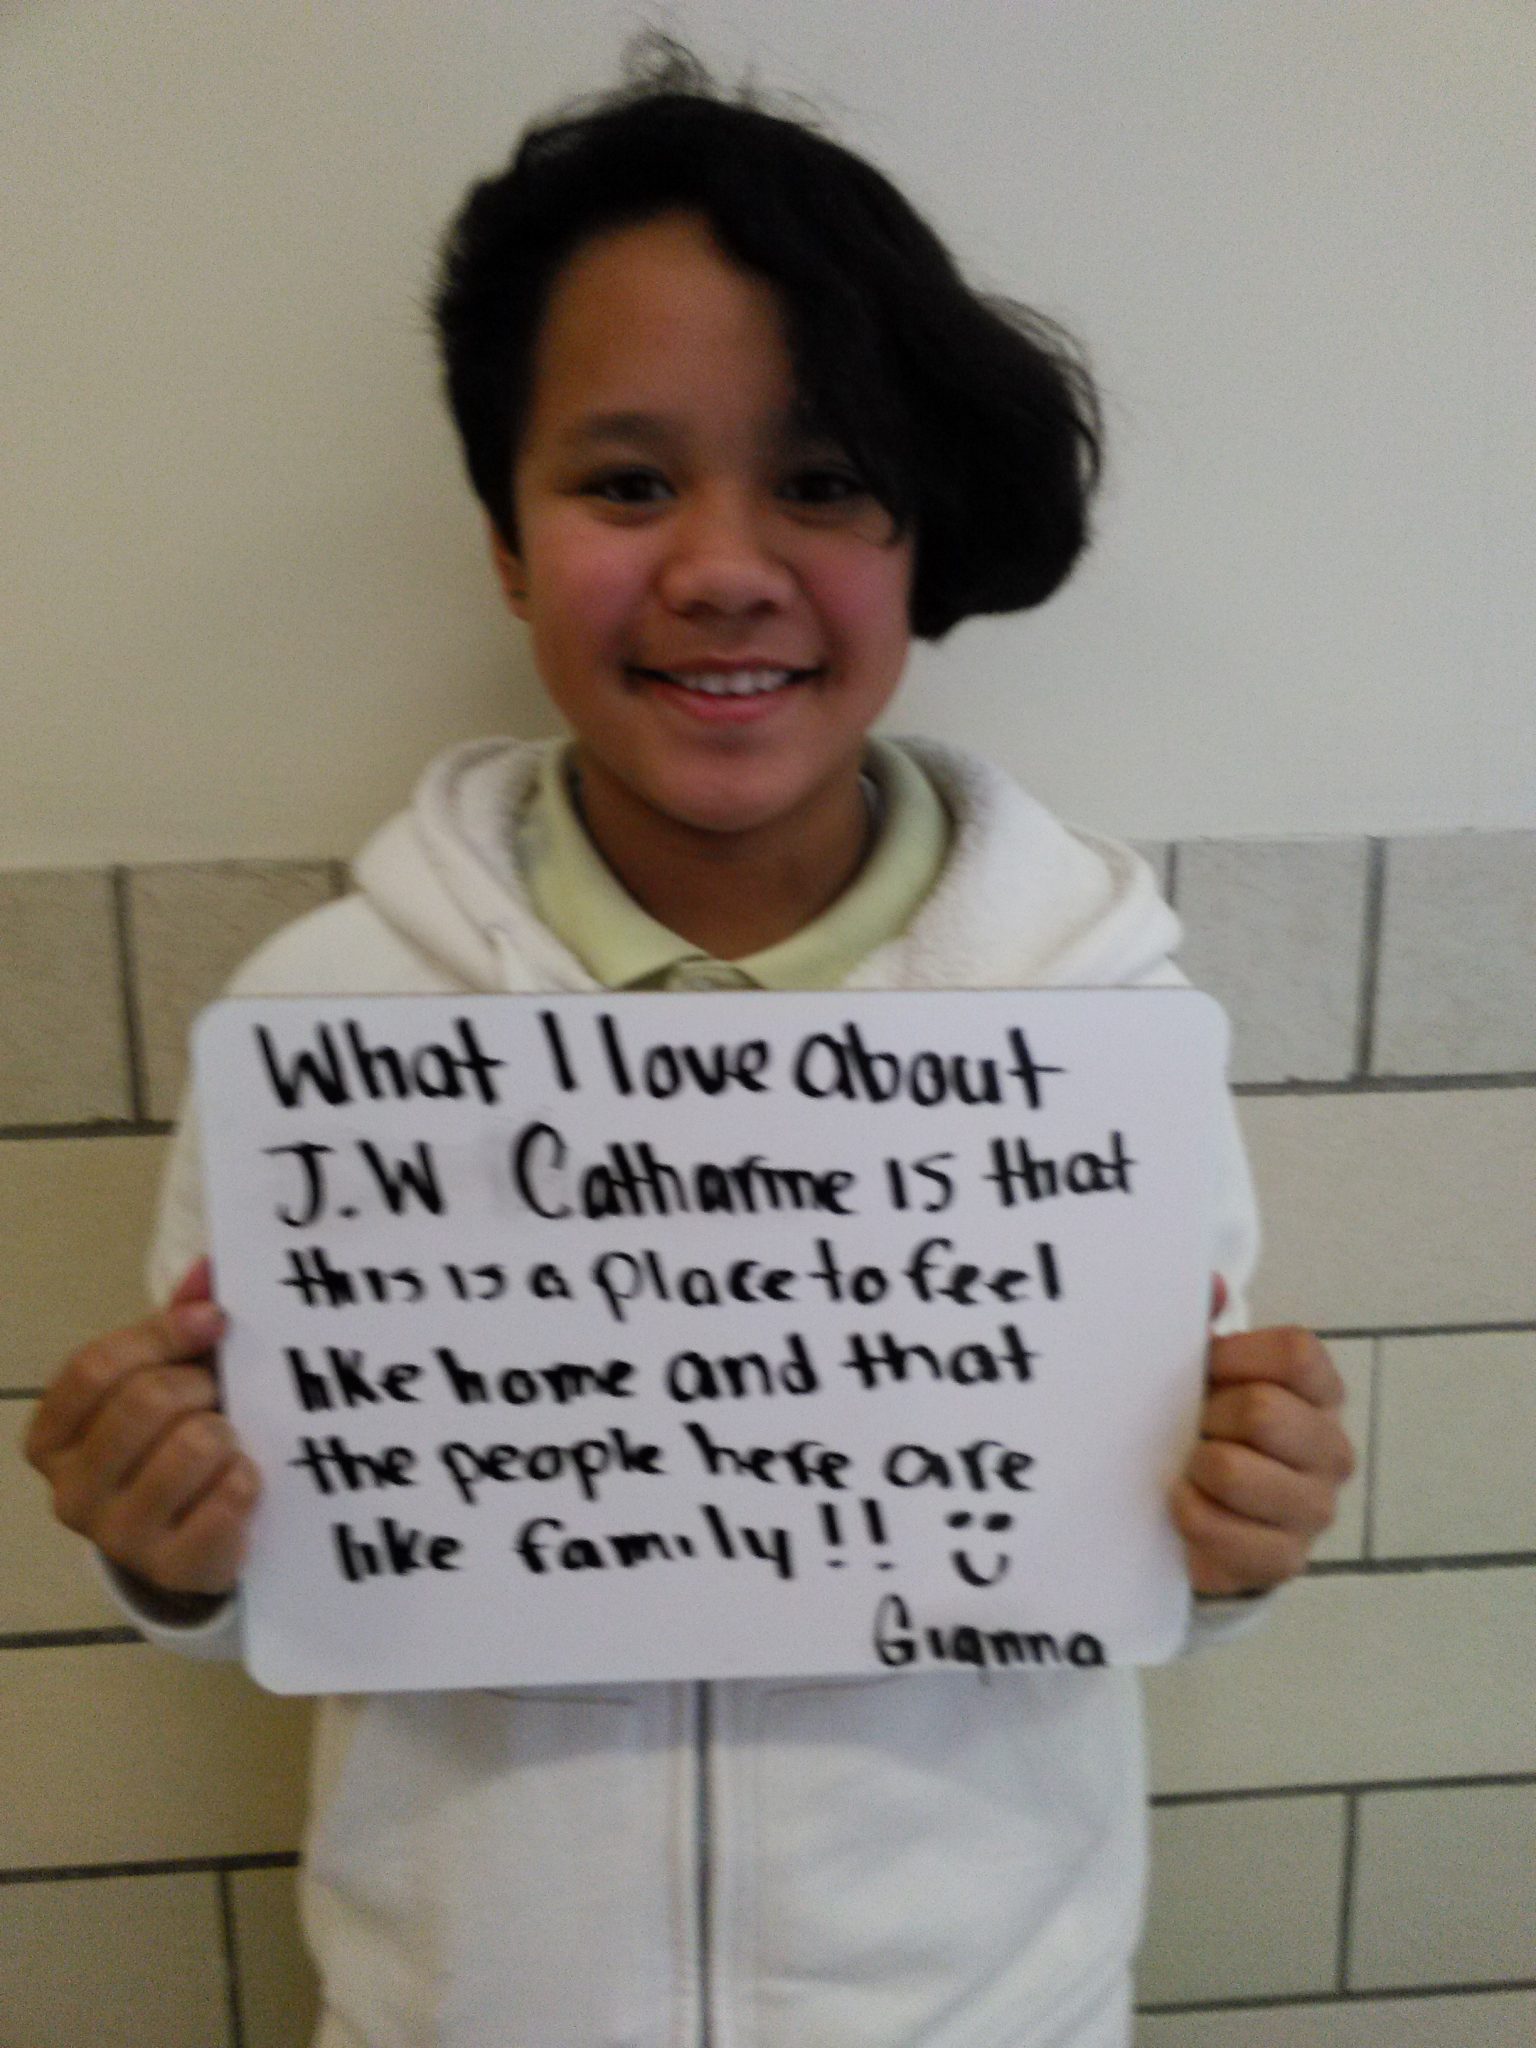 What I love about
J.W Catharine is that
this is a place to feel
like home and that
the people here are
like family!!
Gianna